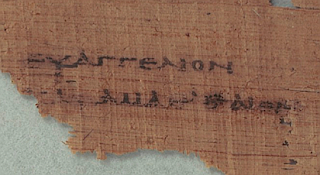 ΕΥΑΓΓΕΛΙΟΝ
ΚΑΤΑ ΜΑΘ᾽ΘΑΙΟΝ